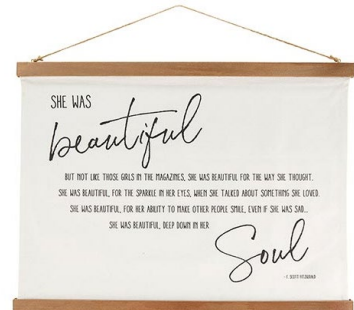 SHE WAS
beautiful
BUT NOT LIKE THOSE GIRLS IN THE MAGAZINES, SHE WAS BEAUTIFUL FOR THE WAY SHE THOUGHT.
SHE WAS BEAUTIFUL, FOR THE SPARKLE IN HER EYES, WHEN SHE TALKED ABOUT SOMETHING SHE LOVED.
SHE WAS BEAUTIFUL, FOR HER ABILITY TO MAKE OTHER PEOPLE SMILE, EVEN IF SHE WAS SAD...
SHE WAS BEAUTIFUL, DEEP DOWN IN HER
Soul
-F. SCOTT FITZGERALD